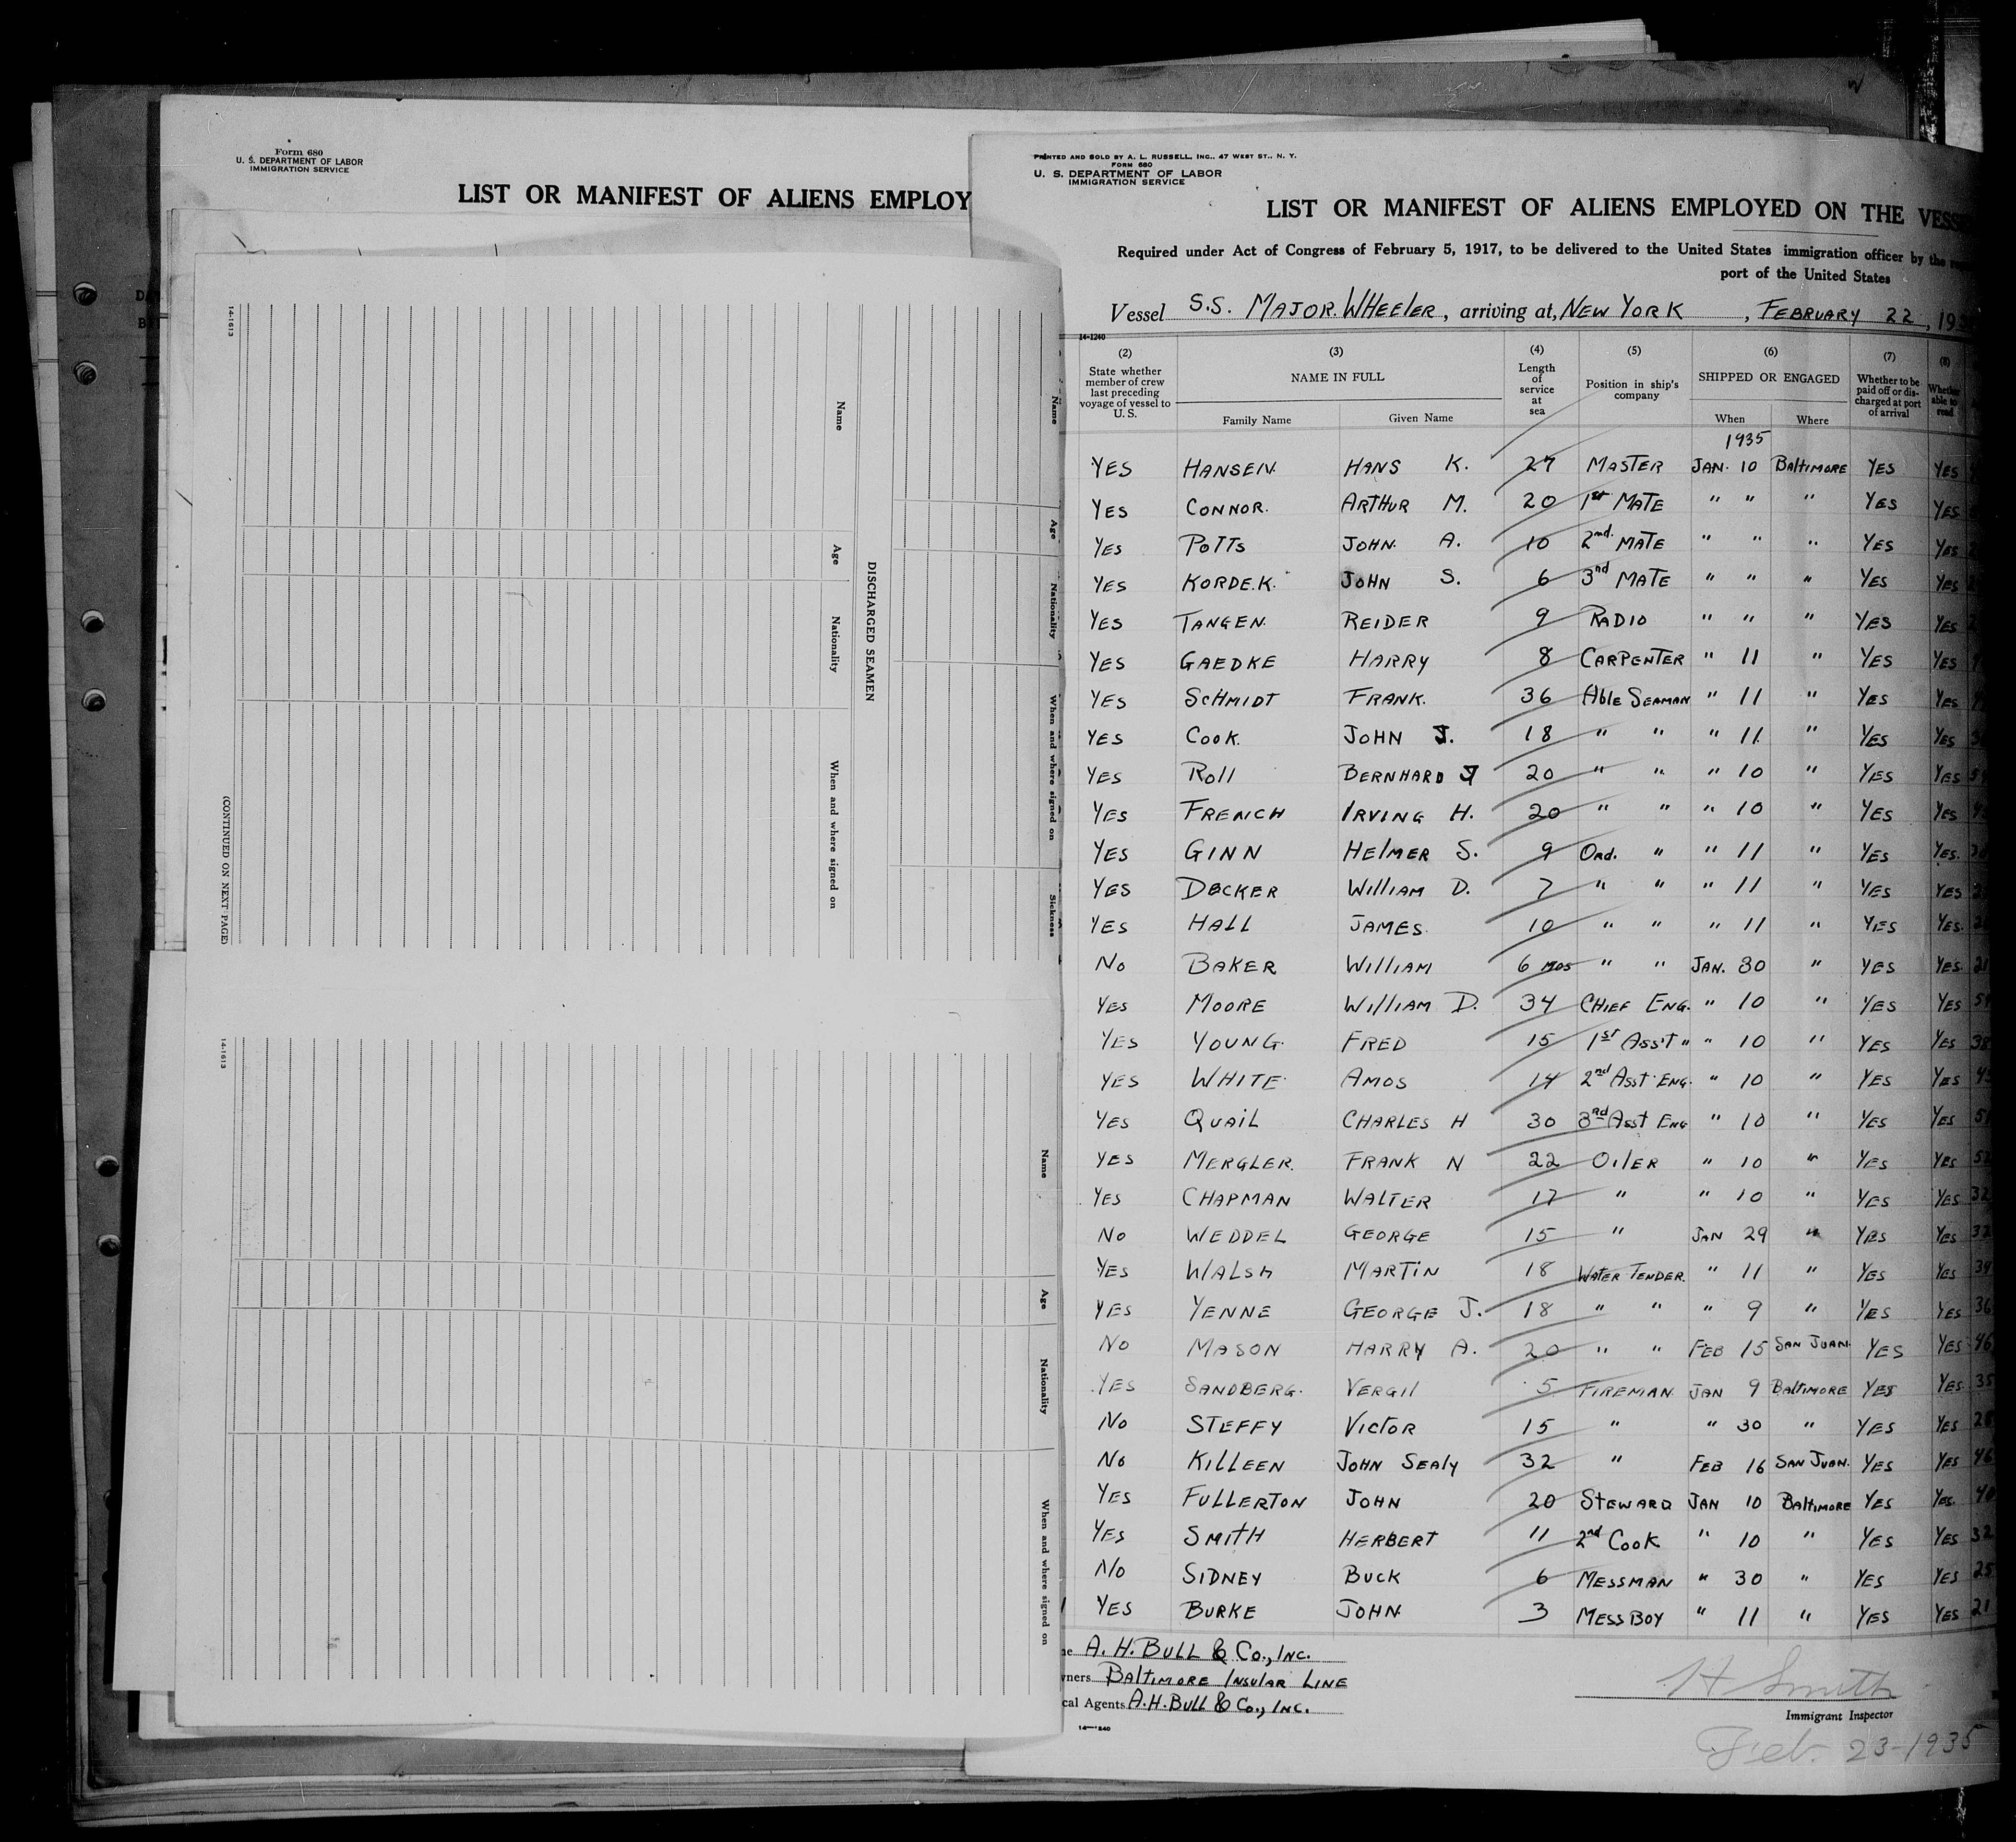 Form 680
U. S. DEPARTMENT OF LABOR
IMMIGRATION SERVICE
LIST OR MANIFEST OF ALIENS EMPLOY
14-1613
Name
Age
Nationality
When and where signed on
Sickness
DISCHARGED SEAMEN
Name
Age
Nationality
When and where signed on
(CONTINUED ON NEXT PAGE)
14-1613
Name
Age
Nationality
When and where signed on
PRINTED AND SOLD BY A. L. RUSSELL, INC., 47 WEST ST., N. Y.
FORM 680
U. S. DEPARTMENT OF LABOR
IMMIGRATION SERVICE
LIST OR MANIFEST OF ALIENS EMPLOYED ON THE VESS
Required under Act of Congress of February 5, 1917, to be delivered to the United States immigration officer by the
port of the United States
Vessel S.S. MAJOR WHEELER, arriving at, NEW YORK, FEBRUARY 22, 193
14-1240
(2) (3) (4) (5) (6) (7) (8)
State whether member of crew last preceding voyage of vessel to U. S.
NAME IN FULL
Family Name Given Name
Length of service at sea
Position in ship's company
SHIPPED OR ENGAGED
When Where
Whether to be paid off or discharged at port of arrival
Whether able to read
1935
YES HANSEN HANS K. 27 MASTER JAN. 10 BALTIMORE YES YES
YES CONNOR. ARTHUR M. 20 1st MATE " " " YES YES
YES POTTS JOHN. A. 10 2nd. MATE " " " YES YES
YES KORDEK. JOHN S. 6 3nd MATE " " " YES YES
YES TANGEN. REIDER 9 RADIO " " " YES YES
YES GAEDKE HARRY 8 CARPENTER " 11 " YES YES
YES SCHMIDT FRANK. 36 Able SEAMAN " 11 " YES YES
YES COOK. JOHN J. 18 " " " 11 " YES YES
YES Roll BERNHARD J 20 " " " 10 " YES YES
YES FRENCH IRVING H. 20 " " " 10 " YES YES
YES GINN HELMER S. 9 Ord. " " 11 " YES YES.
YES DECKER William D. 7 " " " 11 " YES YES
YES HALL JAMES. 10 " " " 11 " YES YES.
No BAKER William 6 mos " " JAN. 30 " YES YES. 21
YES MOORE William D. 34 CHIEF ENG. " 10 " YES YES
YES YOUNG. FRED 15 1st Ass't " " 10 " YES YES 38
YES WHITE AMOS 14 2nd Asst ENG. " 10 " YES YES
YES QUAIL CHARLES H 30 3rd Asst ENG " 10 " YES YES
YES MERGLER. FRANK N 22 OILER " 10 " YES YES 52
YES CHAPMAN WALTER 17 " " 10 " YES YES 32
No WEDDEL GEORGE 15 " JAN 29 " YES YES
YES WALSH MARTIN 18 WATER TENDER. " 11 " YES YES 39
YES YENNE GEORGE J. 18 " " " 9 " YES YES 36
No MASON HARRY A. 20 " " FEB 15 SAN JUAN. YES YES 46
YES SANDBERG. VERGIL 5 FIREMAN JAN 9 BALTIMORE YES YES. 35
No STEFFY VICTOR 15 " " 30 " YES YES
No KILLEEN JOHN SEALY 32 " FEB 16 SAN JUAN. YES YES 46
YES FULLERTON JOHN 20 STEWARD JAN 10 BALTIMORE YES YES. 40
YES SMITH HERBERT 11 2nd COOK " 10 " YES YES 32
No SIDNEY BUCK 6 MESSMAN " 30 " YES YES 25
YES BURKE JOHN. 3 MESS BOY " 11 " YES YES 21
A. H. BULL & Co., INC.
ners BALTIMORE INSULAR LINE
cal Agents A. H. BULL & Co., INC.
14-1240
H Smith
Immigrant Inspector
Feb. 23-1935